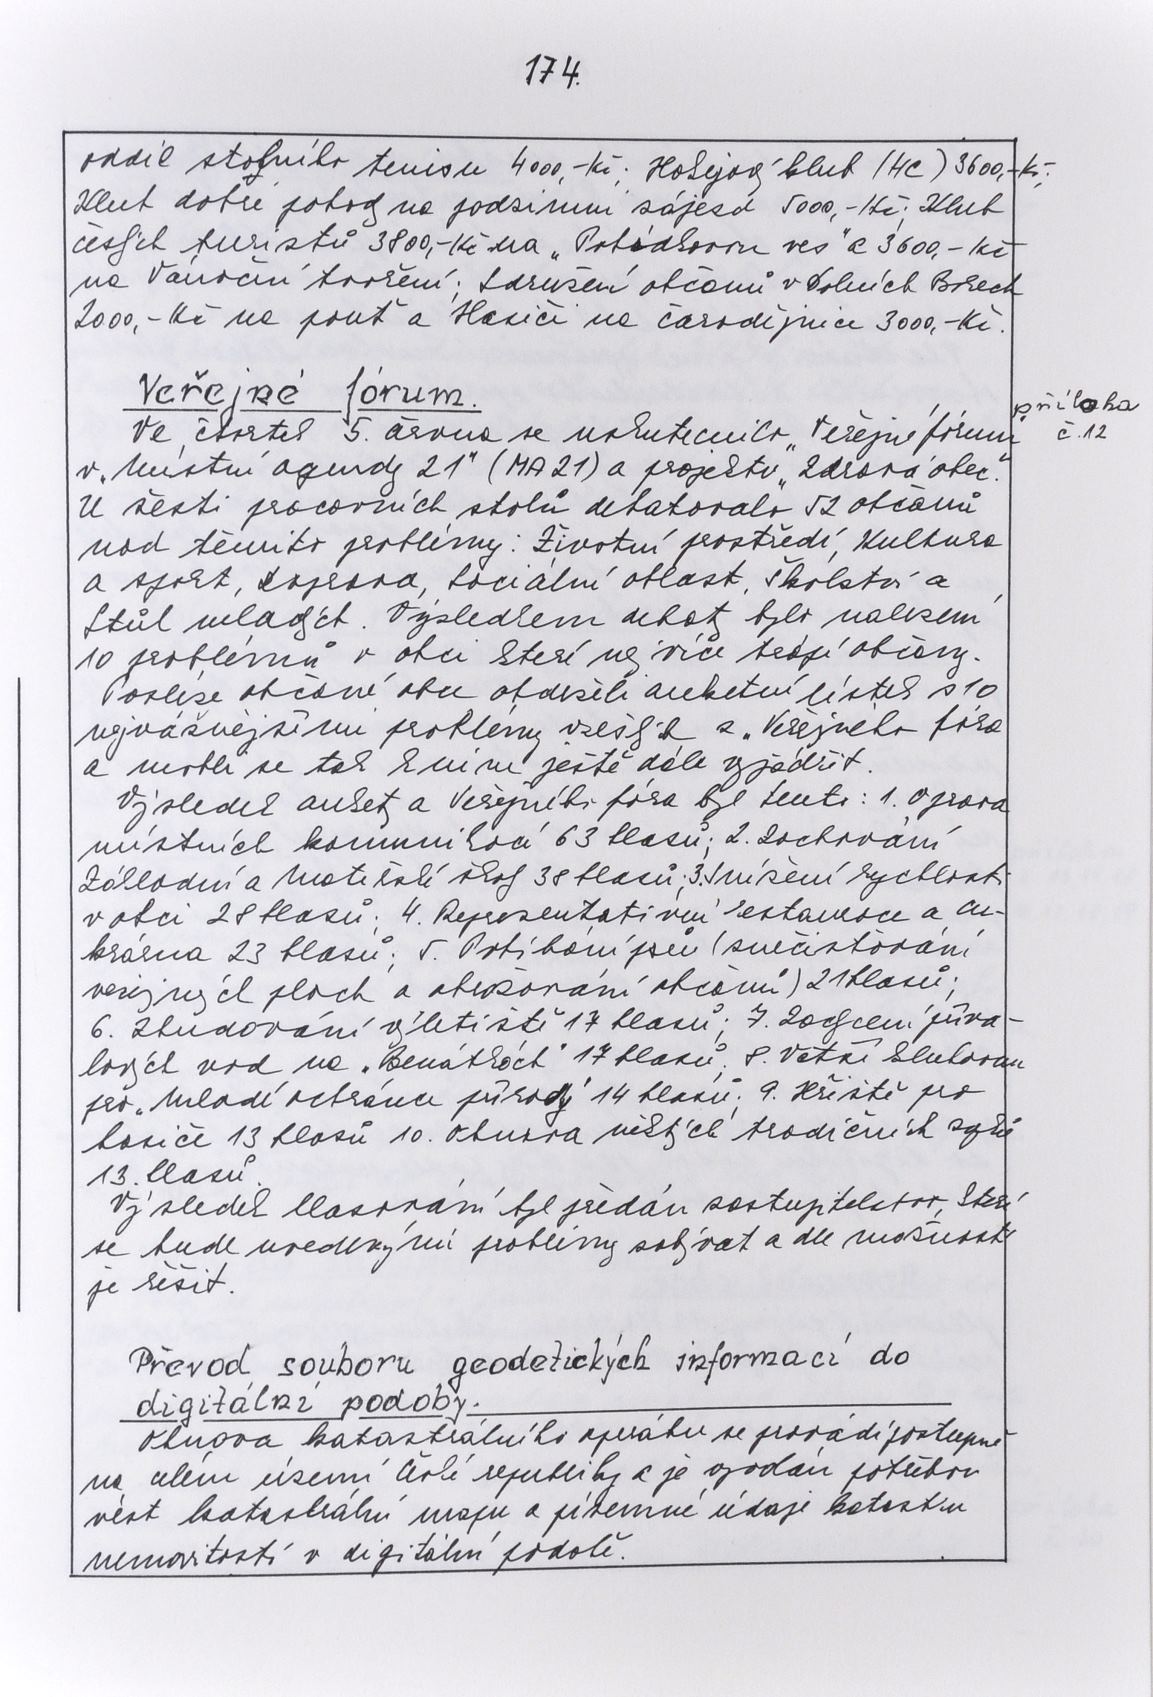 174.
oddíl stolního tenisu 4000,-Kč; Hokejový klub (HC) 3600,-Kč;
Klub dobré pohody na podzimní zájezd 5000,-Kč; Klub
českých turistů 3800,-Kč na „Pohádkovou ves" a 3600,-Kč
na Vánoční tvoření; Sdružení občanů v Dolních Borech
2000,-Kč na pouť a Hasiči na čarodějnice 3000,-Kč.
Veřejné fórum.
příloha
č.12
Ve čtvrtek 5. června se uskutečnilo „Veřejné fórum"
v „Místní agendy 21" (MA21) a projektu „Zdravá obec."
U šesti pracovních stolů debatovalo 52 občanů
nad těmito problémy: Životní prostředí, Kultura
a sport, Doprava, Sociální oblast, Školství a
Stůl mladých. Výsledkem debaty bylo nalezení
10 problémů v obci které nejvíce trápí občany.
Posléze občané obce obdrželi anketní lístek s 10
nejvážnějšími problémy vzešlých z „Veřejného fóra
a mohli se tak k nim ještě dále vyjádřit.
Výsledek ankety a Veřejného fóra byl tento: 1. Oprava
místních komunikací 63 hlasů; 2. Zachování
Základní a Mateřské školy 38 hlasů; 3. Snížení rychlosti
v obci 28 hlasů; 4. Reprezentativní restaurace a cu-
krárna 23 hlasů; 5. Pobíhání psů (znečisťování
veřejných ploch a obtěžování občanů) 21 hlasů;
6. Zbudování výletiště 17 hlasů; 7. Zachycení příva-
lových vod na „Benátkách" 17 hlasů; 8. Větší klubovnu
pro „Mladé ochránce přírody" 14 hlasů; 9. Hřiště pro
hasiče 13 hlasů 10. Obnova některých tradičních zvyků
13. hlasů.
Výsledek hlasování byl předán zastupitelstvu, které
se bude uvedenými problémy zabývat a dle možností
je řešit.
Převod souboru geodetických informací do
digitální podoby.
Obnova katastrálního operátu se provádí postupně
na celém území České republiky a je vyvolán potřebou
vést katastrální mapu a písemné údaje katastru
nemovitostí v digitální podobě.